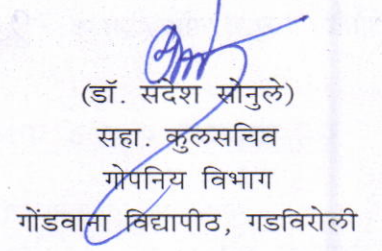 (डॉ. संदेश सोनुले)
सहा. कुलसचिव
गोपनिय विभाग
गोंडवाना विद्यापीठ, गडविरोली